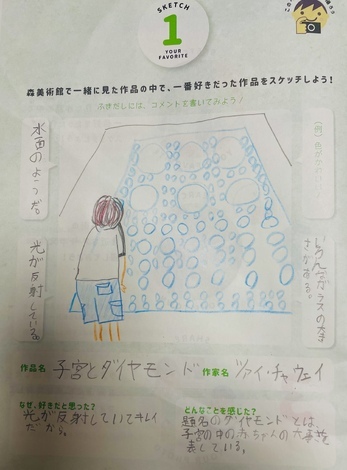 SKETCH
1
YOUR
FAVORITE
森美術館で一緒に見た作品の中で、一番好きだった作品をスケッチしよう！
ふきだしには、コメントを書いてみよう♪
水面のようだ。
光が反射している。
いろんなガラスの大きさがある。
作品名 子宮とダイヤモンド 作家名 ツァイ・チャウェイ
なぜ、好きだと思った？
光が反射していてキレイ
だから。
どんなことを感じた？
題名のダイヤモンドとは、
子宮の中の赤ちゃんの
表している。